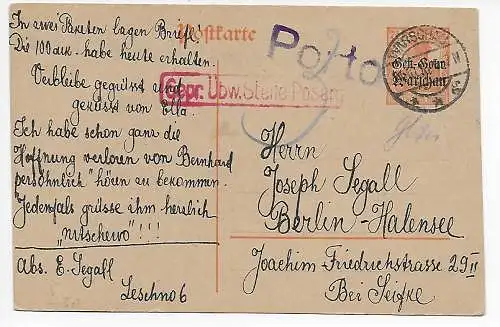 In zwei Paketen lagen Briefe!
Die 100 MK. habe heute erhalten.
Verbleibe gegrüsst und
geküsst von Ella.
Ich habe schon ganz die
Hoffnung verloren von Bernhard
persöhnlich" hören zu bekommen.
"Jedenfals grüsse ihm herzlich
"nitschewo"!!!
Abs. E. Segall
Leschno 6
Postkarte
Porto
Gepr. Übw. Stelle Posen
WARSCHAU
Gen.-Gouv.
Warschau
Herrn
Joseph Segall
Berlin-Halensee
Joachim-Friedrichstrasse 29 II
Bei Seifke